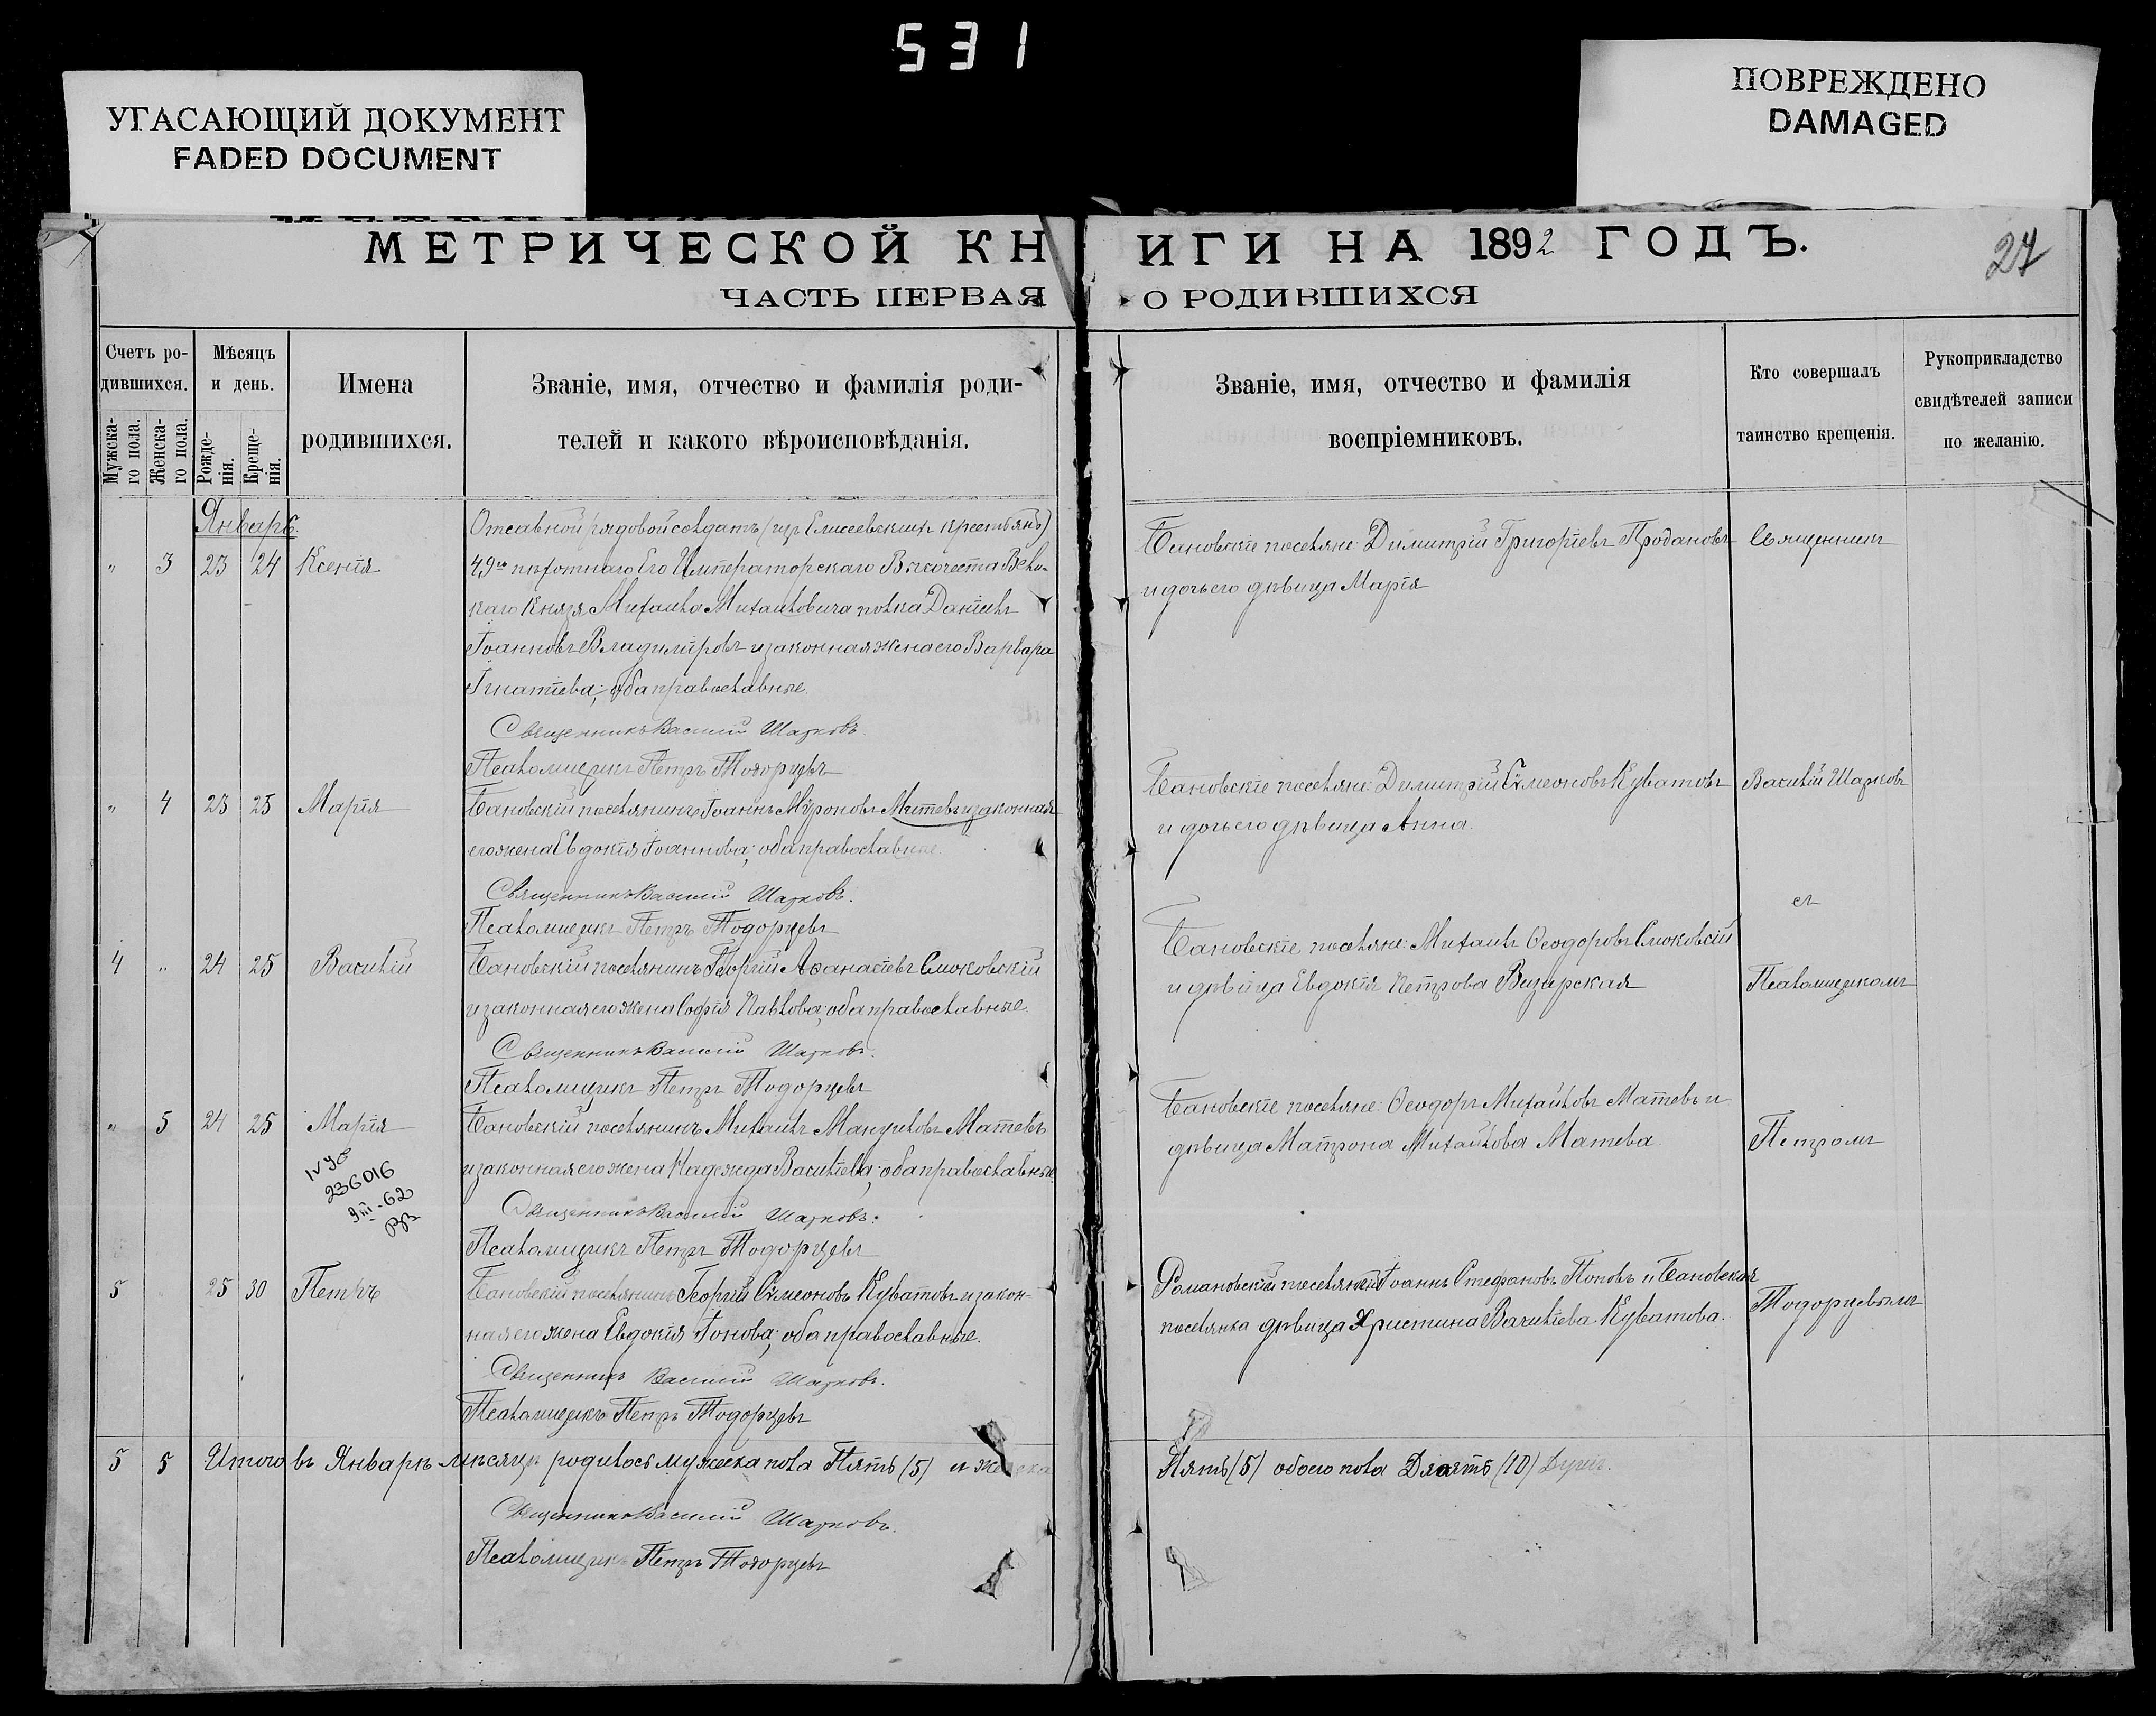 531
УГАСАЮЩИЙ ДОКУМЕНТ
FADED DOCUMENT
ПОВРЕЖДЕНО
DAMAGED
МЕТРИЧЕСКОЙ КН
ИГИ НА 1892 ГОДЪ.
27
ЧАСТЬ ПЕРВАЯ
О РОДИВШИХСЯ
Счетъ ро-
дившихся.
Мужска-
го пола.
Женска-
го пола.
Мѣсяцъ
и день.
Рожде-
нія.
Креще-
нія.
Имена
родившихся.
Званіе, имя, отчество и фамилія роди-
телей и какого вѣроисповѣданія.
Званіе, имя, отчество и фамилія
воспріемниковъ.
Кто совершалъ
таинство крещенія.
Рукоприкладство
свидѣтелей записи
по желанію.
Январь.
" 3 23 24 Ксенія
Отставной рядовой солдатъ (изъ Елисеевскихъ крестьянъ)
49го пѣхотнаго Его Императорскаго Высочества Вели-
каго Князя Михаила Михаиловича полка Даніилъ
Іоанновъ Владиміровъ и законная жена его Варвара
Игнатіева; оба православные.
Священникъ Василій Шарковъ.
Псаломщикъ Петръ Тодорцевъ
Бановскіе поселяне: Димитрій Григоріевъ Продановъ
и дочь его дѣвица Марія
Священникъ
" 4 23 25 Марія
Бановскій поселянинъ Іоаннъ Мѵроновъ Митевъ и законная
его жена Евдокія Іоаннова; оба православные.
Священникъ Василій Шарковъ.
Псаломщикъ Петръ Тодорцевъ
Бановскіе поселяне: Димитрій Сѵмеоновъ Куватовъ
и дочь его дѣвица Анна
Василій Шарковъ
съ
4 " 24 25 Василій
Бановскій поселянинъ Георгій Аѳанасіевъ Слюковскій
и законная его жена Софія Павлова; оба православные.
Священникъ Василій Шарковъ.
Псаломщикъ Петръ Тодорцевъ
Бановскіе поселяне: Михаилъ Ѳеодоровъ Слюковскій
и дѣвица Евдокія Петрова Визирская
Псаломщикомъ
" 5 24 25 Марія
Бановскій поселянинъ Михаилъ Мануиловъ Матевъ
и законная его жена Надежда Василіева; оба православные.
Священникъ Василій Шарковъ.
Псаломщикъ Петръ Тодорцевъ
236016
9 III-62
Бановскіе поселяне: Ѳеодоръ Михайловъ Матевъ и
дѣвица Матрона Михайлова Матева
Петромъ
5 25 30 Петръ
Бановскій поселянинъ Георгій Сѵмеоновъ Куватовъ и закон-
ная его жена Евдокія Іонова; оба православные.
Священникъ Василій Шарковъ.
Псаломщикъ Петръ Тодорцевъ
Романовскій поселянинъ Іоаннъ Стефановъ Поповъ и Бановская
поселянка дѣвица Христина Василіева Куватова.
Тодорцевымъ
5 5 Итого въ Январѣ мѣсяцѣ родилось мужеска пола Пять (5) и женска
Пять (5) обоего пола Десять (10) Душъ.
Священникъ Василій Шарковъ.
Псаломщикъ Петръ Тодорцевъ